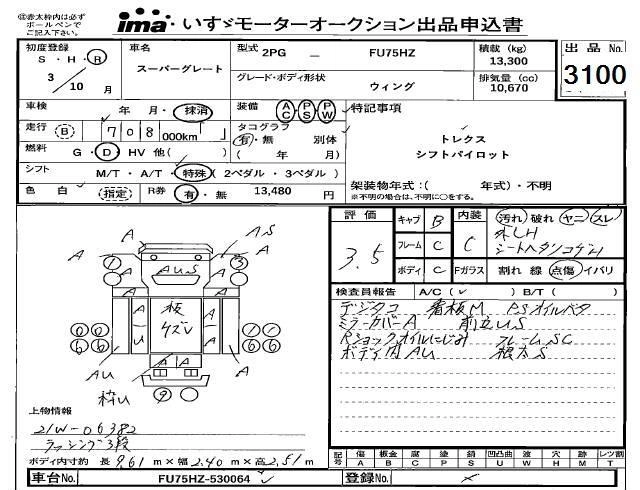 ㊟赤太枠内は必ず
ボールペンで
ご記入下さい。
ima いすゞモーターオークション出品申込書
初度登録
S・H・R
3/10月
車名
スーパーグレート
型式 2PG － FU75HZ
積載 (kg)
13,300
出品 No.
3100
グレード・ボディ形状
ウィング
排気量 (cc)
10,670
車検 年 月・抹消
装備 AC PS PW
特記事項
走行 B 708 000km
タコグラフ
有・無 別体
( 年 月)
トレクス
シフトパイロット
燃料 G・D・HV 他( )
シフト M/T・A/T・特殊 (2ペダル・3ペダル)
架装物年式:( 年式)・不明
※不明の場合は、不明に○をする。
色 白 指定 R券 有・無 13,480 円
評価 3.5
キャブ B
フレーム C
ボディ C
内装 C
Fガラス
汚れ 破れ ヤニ スレ
シートヘタリコゲH
割れ 線 点傷 イバリ
A A A A S
① ③ A U S
A A A A
板 ケズレ
U U
A U A A
枠U ⑨
検査員報告 A/C( ✓ ) B/T( )
デジタコ 看板M PSオイルベタ
ミラーカバーA 前立US
Rショックオイルにじみ フレームSC
ボディ内AU 根太S
上物情報
21W-06382
ラッシング3段
ボディ内寸約 長 9.61 m×幅 2.40 m×高 2.51 m
記号 傷 板金 腐 塗 錆 凹凸曲 波 穴 跡 レツ割
A B C P S U W H M T
車台No. FU75HZ-530064
登録No.